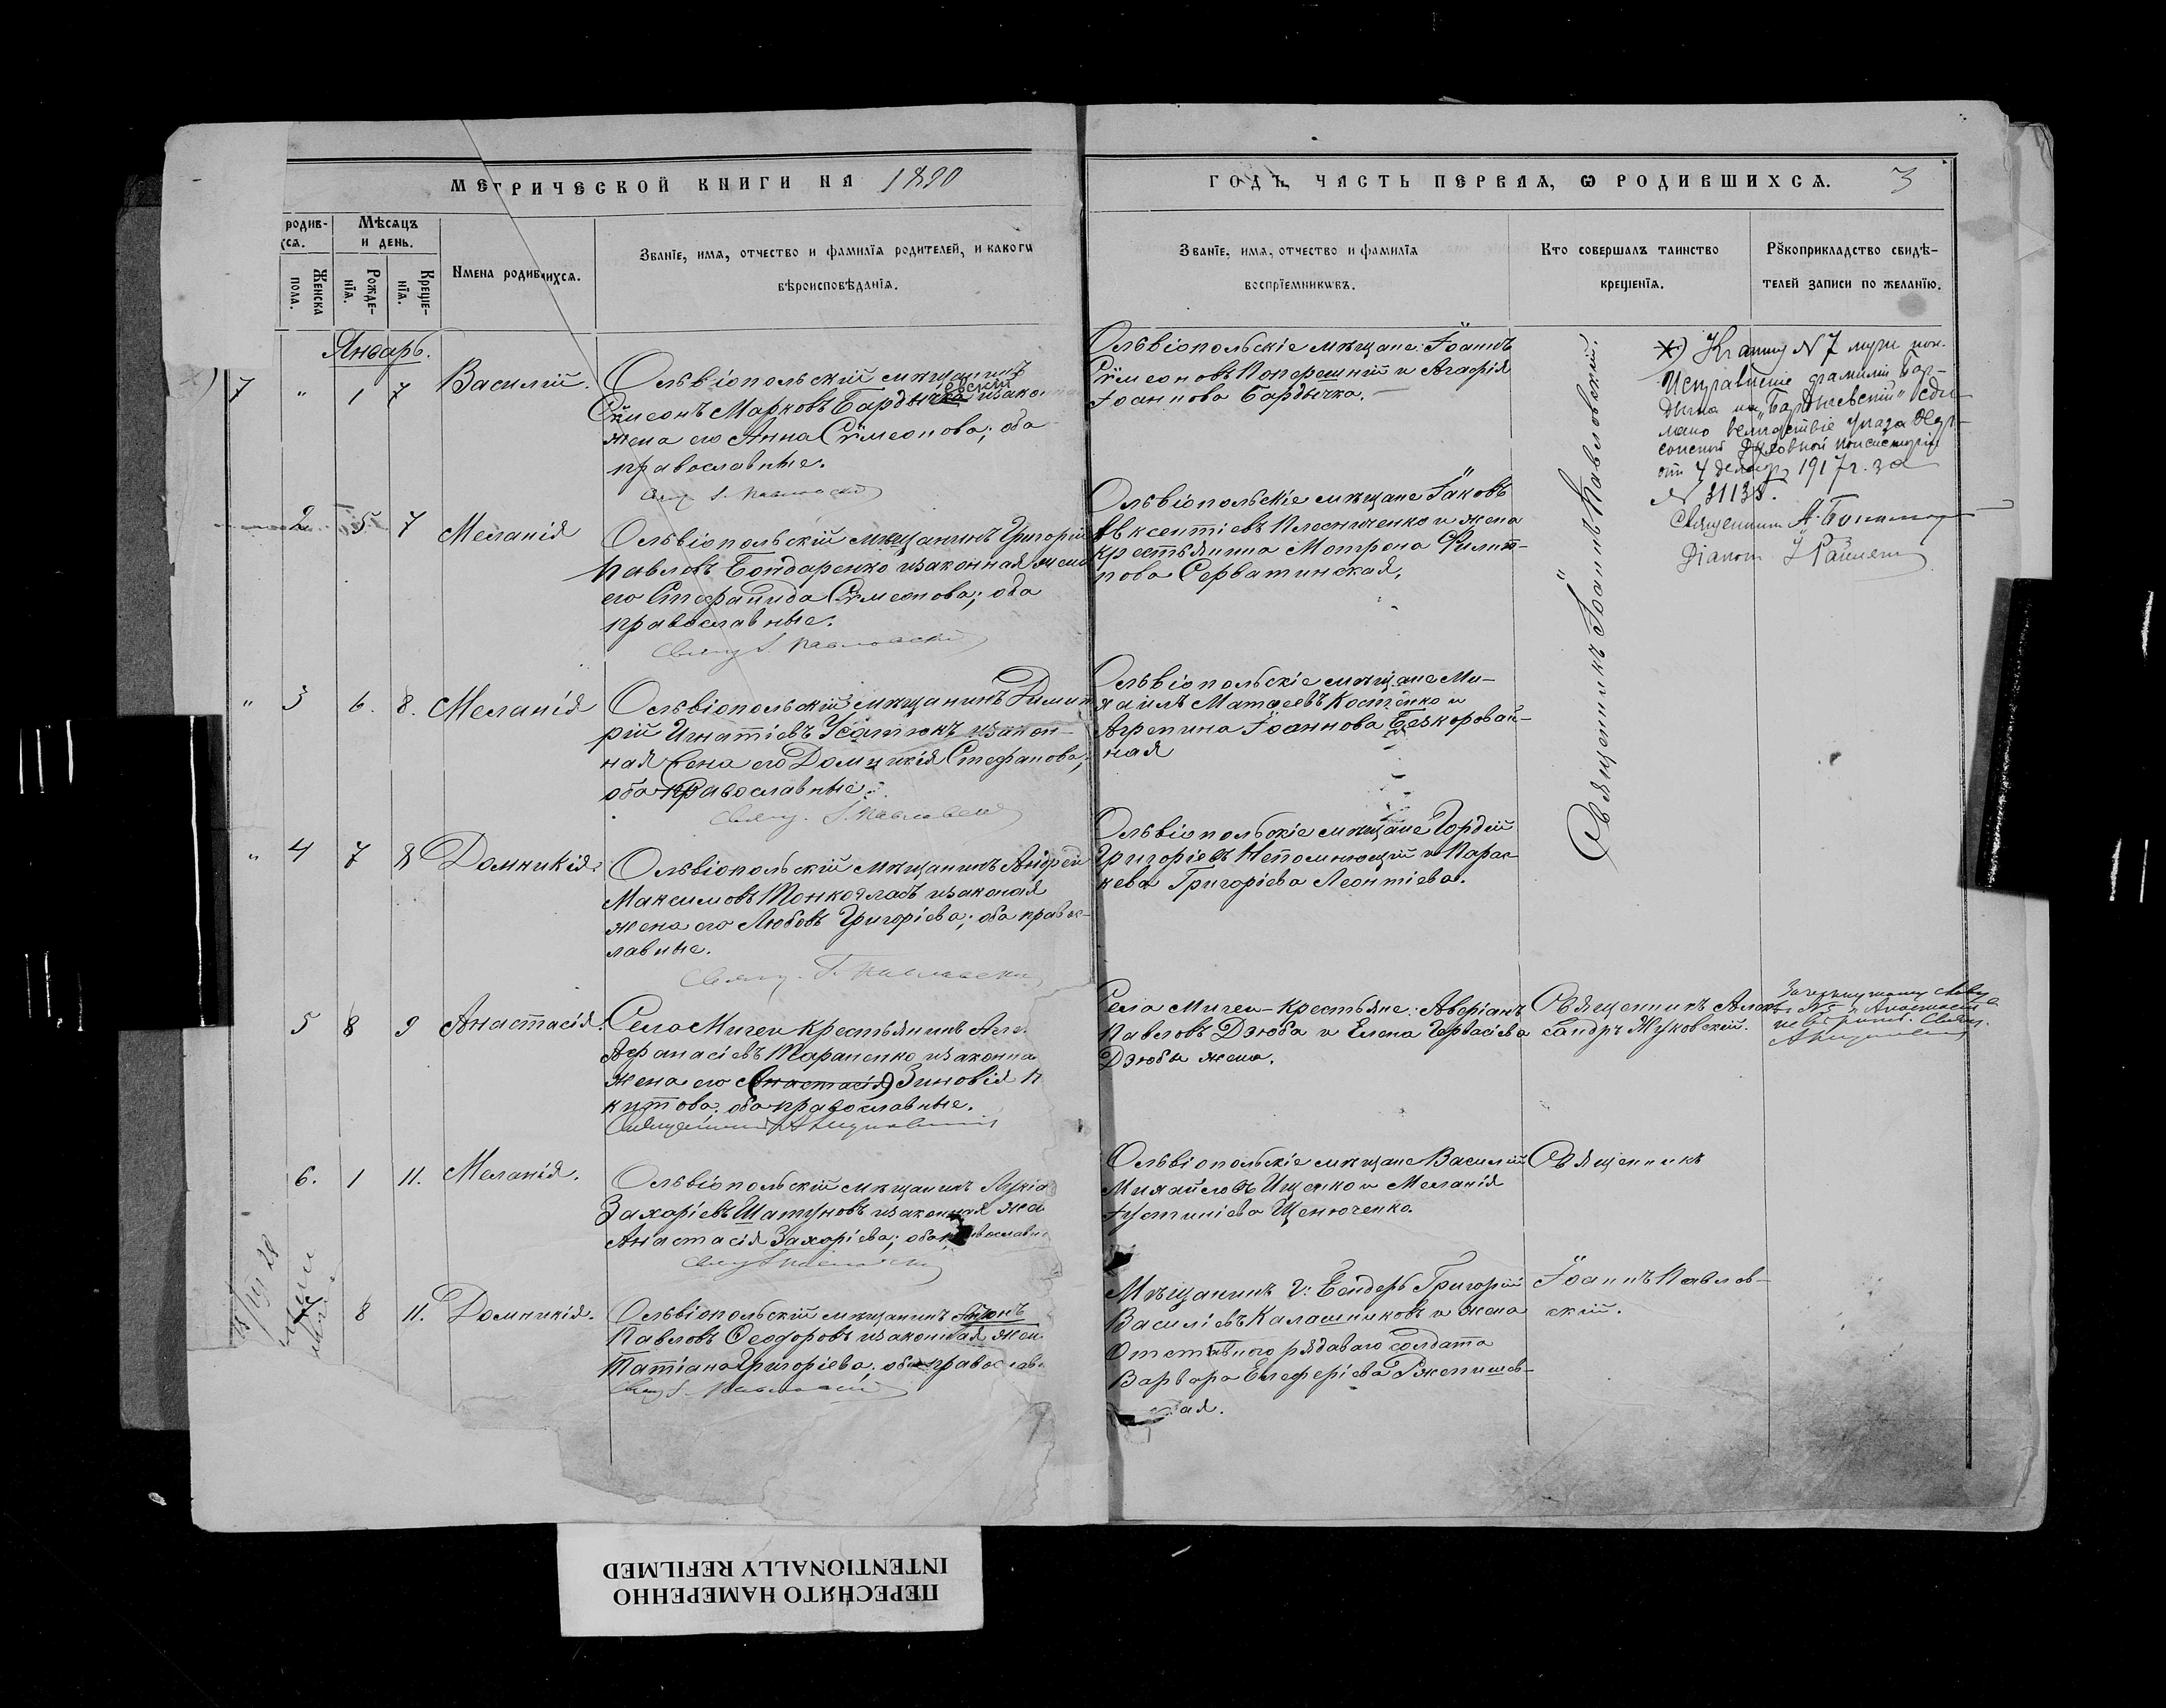 МЕТРИЧЕСКОЙ КНИГИ НА 1890
ГОДЪ, ЧАСТЬ ПЕРВАЯ, Ѡ РОДИВШИХСЯ. 3
родив-
хся.
Женска
пола.
Мѣсяцъ
и день.
Рожде-
нїя.
Креще-
нїя.
Имена родившихся.
Званїе, имя, отчество и фамилїя родителей, и какоги
вѣроисповѣданїя.
Званїе, имя, отчество и фамилїя
воспрїемникивъ.
Кто совершалъ таинство
крещенїя.
Рꙋкоприкладство свидѣ-
телей записи по желанїю.
Январь.
7 " 1 7 Василій.
Ольвіопольскій мѣщанинъ
Сѵмеонъ Марковъ Бардычевскій изакон
жена его Анна Сѵмеонова; оба
православные.
Свящ І. Павловскій
Ольвіопольскіе мѣщане: Іоаннъ
Сѵмеоновъ Поперешній и Агафія
Іоаннова Бардычка.
Священникъ Іоаннъ Павловскій.
*) Къ акту N 7 муж. пол.
Исправленіе фамиліи Бар-
дычка на „Бардычевскій" сдѣ-
лано вслѣдствіе указа Хер-
сонской Духовной Консисторіи
от 4 декабр 1917 г. за
N 31138.
Священникъ А.
Діаконъ
2 5 7 Меланія
Ольвіопольскій мѣщанинъ Григорій
Павловъ Бондаренко изаконная жена
его Стефанида Сѵмеонова; оба
православные.
Свящ І. Павловскій
Ольвіопольскіе мѣщане Іаковъ
Авксентіевъ Плесниченко и жена
крестьянина Мотрона Филип-
пова Серватинская.
" 3 6. 8. Меланія
Ольвіопольскій мѣщанинъ Димит
рій Игнатіевъ Усатюкъ изакон-
ная жена его Домникія Стефанова;
оба православные.
Свящ. І. Павловскій
Ольвіопольскіе мѣщане Ми-
хаилъ Матѳеевъ Костенко и
Агрепина Іоаннова Безкоровай-
ная
" 4 7 8 Домникія.
Ольвіопольскій мѣщанинъ Андрей
Максимовъ Тонкогласъ изаконая
жена его Любовь Григоріева; оба правос-
лавные.
Свящ. І. Павловскій
Ольвіопольскіе мѣщане Гордій
Григоріевъ Непомнющій и Парас-
кева Григоріева Леонтіева.
5 8 9 Анастасія.
Села Мигеи крестьянинъ Але
Афанасіевъ Тараненко изаконна
жена его (Анастасія) Зиновія Н
китова; оба православные.
Священникъ А Жуковскій
Села Мигеи - крестьяне: Аверіанъ
Павловъ Дзюба и Елена Гервасіева
Дзюбы жена.
Священникъ Алек-
сандръ Жуковскій.
Зачеркнутому слову
въ N5 „Анастасія"
не вѣрить. Свящ.
А Жуковскій
6. 1 11. Меланія.
Ольвіопольскій мѣщанинъ Лукіа
Захаріевъ Шатуновъ изаконная жена
Анастасія Захаріева; оба православны
Свящ І Павловскій
Ольвіопольскіе мѣщане Василій
Михайловъ Ищенко и Меланія
Іустиніева Щенюченко.
Священникъ
8 11. Домникія.
Ольвіопольскій мѣщанинъ Антонъ
Павловъ Ѳеодоровъ изаконная жена
Татіана Григоріева; оба православн
Свящ І. Павловскій
Мѣщанинъ г: Бендеръ Григорій
Василіевъ Калашниковъ и жена
Отставного рядоваго солдата
Варвара Елеферіева Ржепишев-
ская.
Іоаннъ Павлов-
скій.
ПЕРЕСНЯТО НАМЕРЕННО
INTENTIONALLY REFILMED